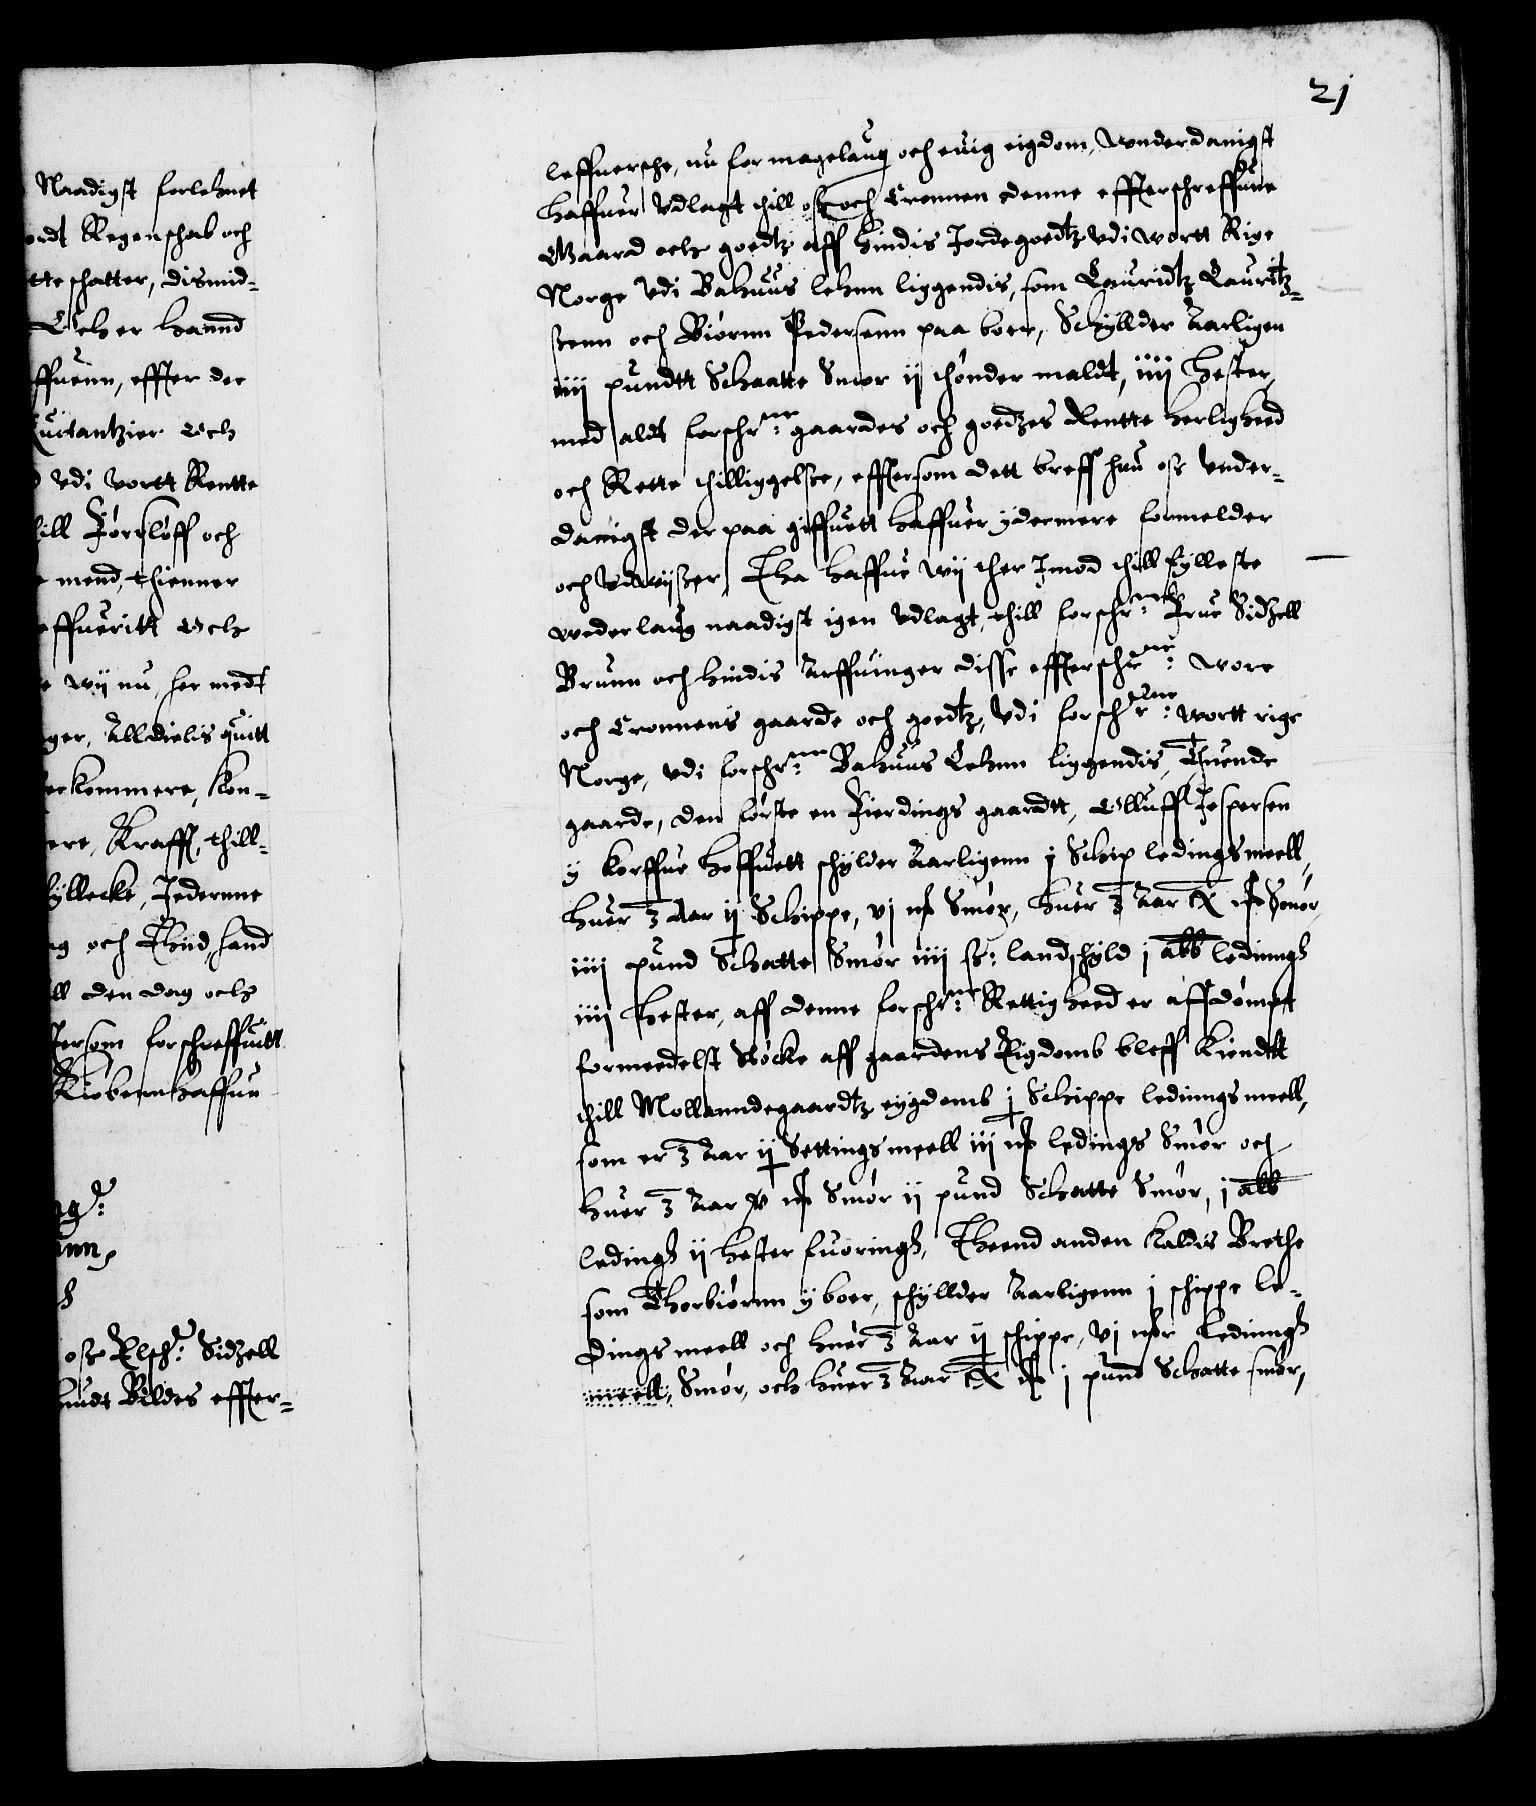 Naadigst forlehnet
ordt Regenschab och
tte schatter, dismid-
Och er hannd
ffuenn, effter der
Quitantzier Och
vdi vortt Rentte
ill Förslöff och
mend, thienner
effueritt Och
wij nu her medt
ger, Alldielis quitt
erkommere, Kon-
ere, Krafft, thill-
hyllecke, Jedernne
ng och Thiid, hand
ll den dag och
fersom forschreffuitt
Kiøbennhaffnn
ng:
ann,
osz Elsch: Sidzell
Knudt Bildes effter-
21
leffuersche, nu for magelaug och euig eigdom, wnderdanigst
haffuer Vdlagt thill osz och Cronnen denne effterschreffune
Gaard och goedtz aff hindis Jordegoedtz vdi wortt Rige
Norge vdi Bahuus lehnn liggendis, som Lauridtz Lauritz-
senn och Biörnn Pedersenn paa boer, Schyllder Aarligen
iiij pundtt Schaatte Smör ij thönder maldt, iiij hester,
med aldt forschr:ne gaardes och goedzes Rentte herlighed
och Rette thilliggelsse, efftersom dett breff hun osz vnder-
danigst der paa giffuett haffuer ydermere formelder
och vduijszer, Tha haffue wij ther Jmod thill fylleste
wederlaug naadigst igen vdlagt, thill forschr:ne Frue Sidzell
Brunn och hindis Arffuinger disse effterschr:ne wore
och Cronnens gaarde och goedtz, vdi forschr:ne wortt rige
Norge, vdi forschr:ne Bahuus Lehnn liggendis, Thuende
gaarde, den förste en Fierdings gaardtt, Olluff Jespersen
y Korffue hoffuett schylder Aarligenn j Schip ledings meell,
huer 3 Aar ij Schippe, vj mp Smör, huer 3 Aar ix mp Smör
iiij pund Schatte Smör iiij sz: landschyld j alb ledinngs
iiij hester, aff denne forschr:ne Rettigheed er affdömpt
formeedelst Stöcke aff gaardens Eigdomb bleff Kiendtt
thill Mollanndegaardtz eygdomb j Schippe ledinngs meell,
som er 3 Aar ij Settings meell iij mp ledings Smör och
huer 3 Aar v mp Smör ij pund Schatte Smör, j alb
ledings ij hester fuorings, Theend anden Kaldis Brethe
som Thorbiörnn y boer, schyllder Aarligenn j schippe le-
dings meell och huer 3 Aar ij schippe, vj mpr ledinngs
meell, Smör, och huer 3 Aar ix mp j pund Schatte smör,